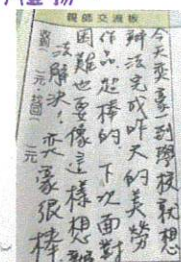 親師交流板
今天奕豪一到學校就想
辦法完成昨天的美勞
作品,超棒的,下次面對
困難也要像這樣想辦
法解決!奕豪很棒